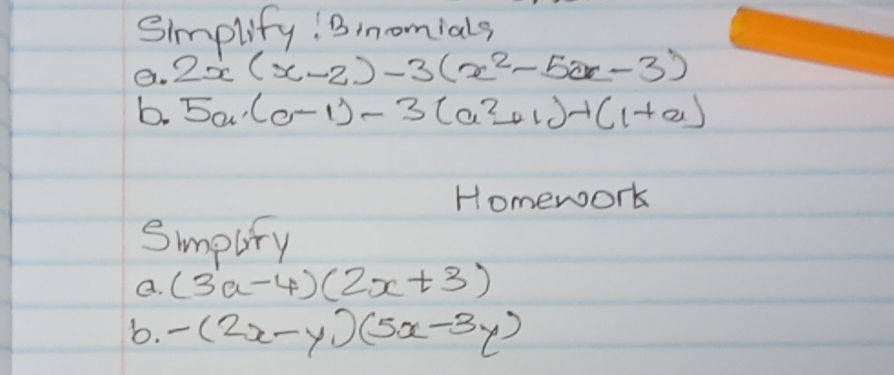 Simplify : Binomials
a. 2x (x-2) - 3(x² - 5x - 3)
b. 5a.(a-1) - 3(a²+1)+(1+a)
Homework
Simplify
a. (3a-4)(2x+3)
b. -(2x-y)(5x-3y)